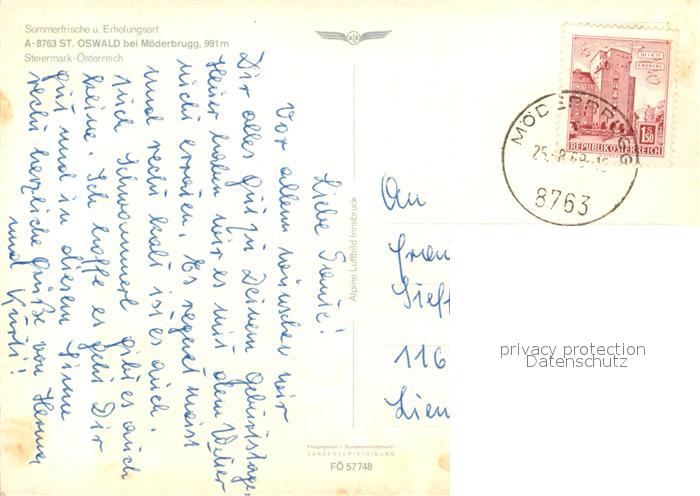 Sommerfrische u. Erholungsort
A-8763 ST. OSWALD bei Möderbrugg, 991 m
Steiermark-Österreich
Liebe
Vor allem wünschen wir
Dir alles gut zu Deinem Geburtstage,
Heuer haben wir es mit dem Wetter
nicht erraten. Es regnet meist
und recht kalt ist es auch.
Schwammerl gibt es auch
keine. Ich hoffe es geht Dir
gut und in diesem Sinne
recht herzliche Grüße von Hanna
und Kurti!
Alpine Luftbild Innsbruck
Freigegeben - Bundesministerium f.
LANDESVERTEIDIGUNG
FÖ 57 748
WIEN
ERDBERG
1.50
S
REPUBLIK OSTERREICH
MÖDERBRUGG
8763
An
116
privacy protection
Datenschutz